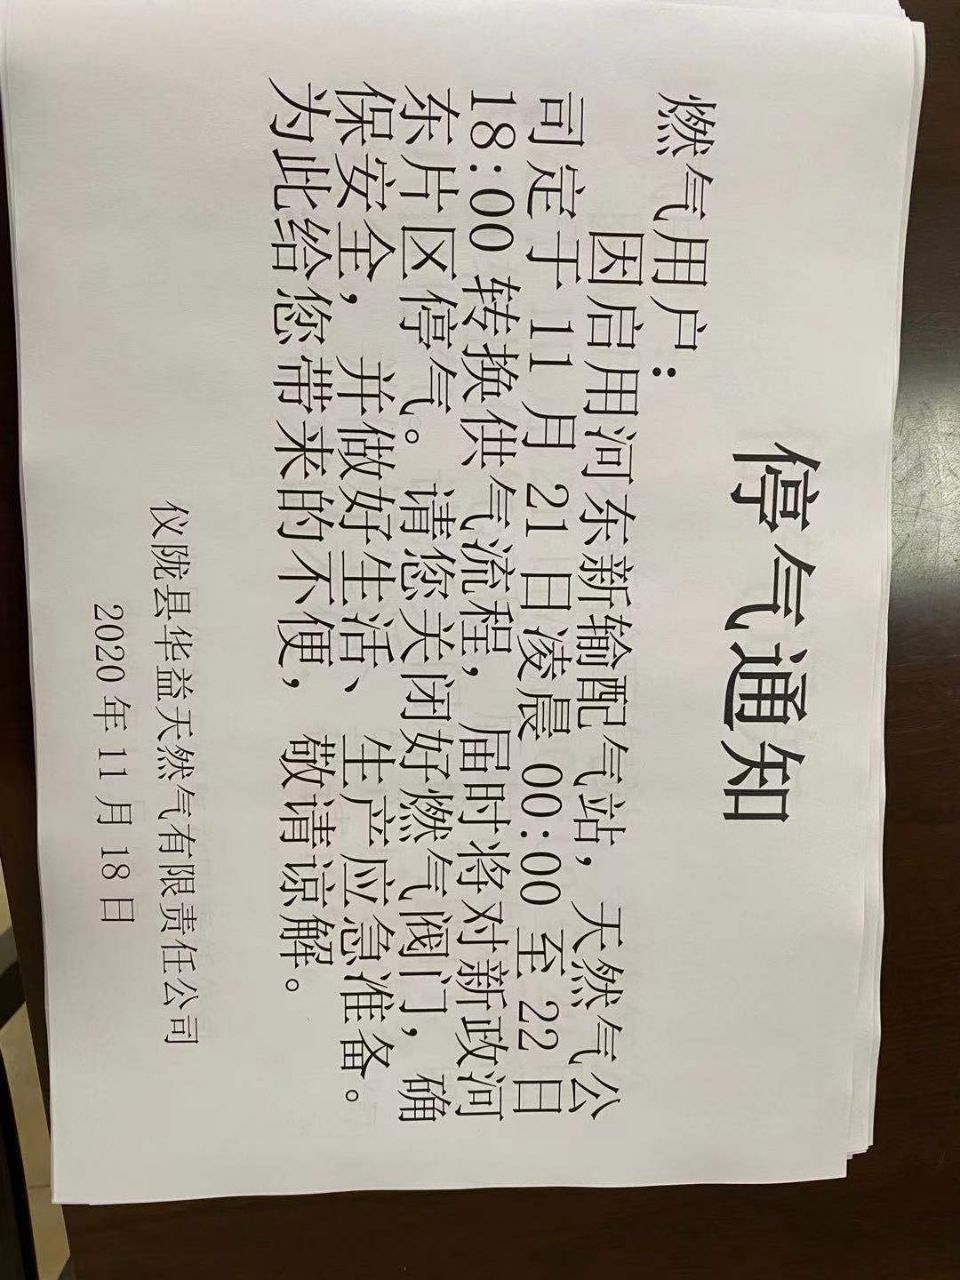 停气通知
燃气用户：
因启用河东新输配气站，天然气公
司定于 11 月 21 日凌晨 00:00 至 22 日
18:00 转换供气流程，届时将对新政河
东片区停气。请您关闭好燃气阀门，确
保安全，并做好生活、生产应急准备。
为此给您带来的不便，敬请谅解。
仪陇县华益天然气有限责任公司
2020 年 11 月 18 日